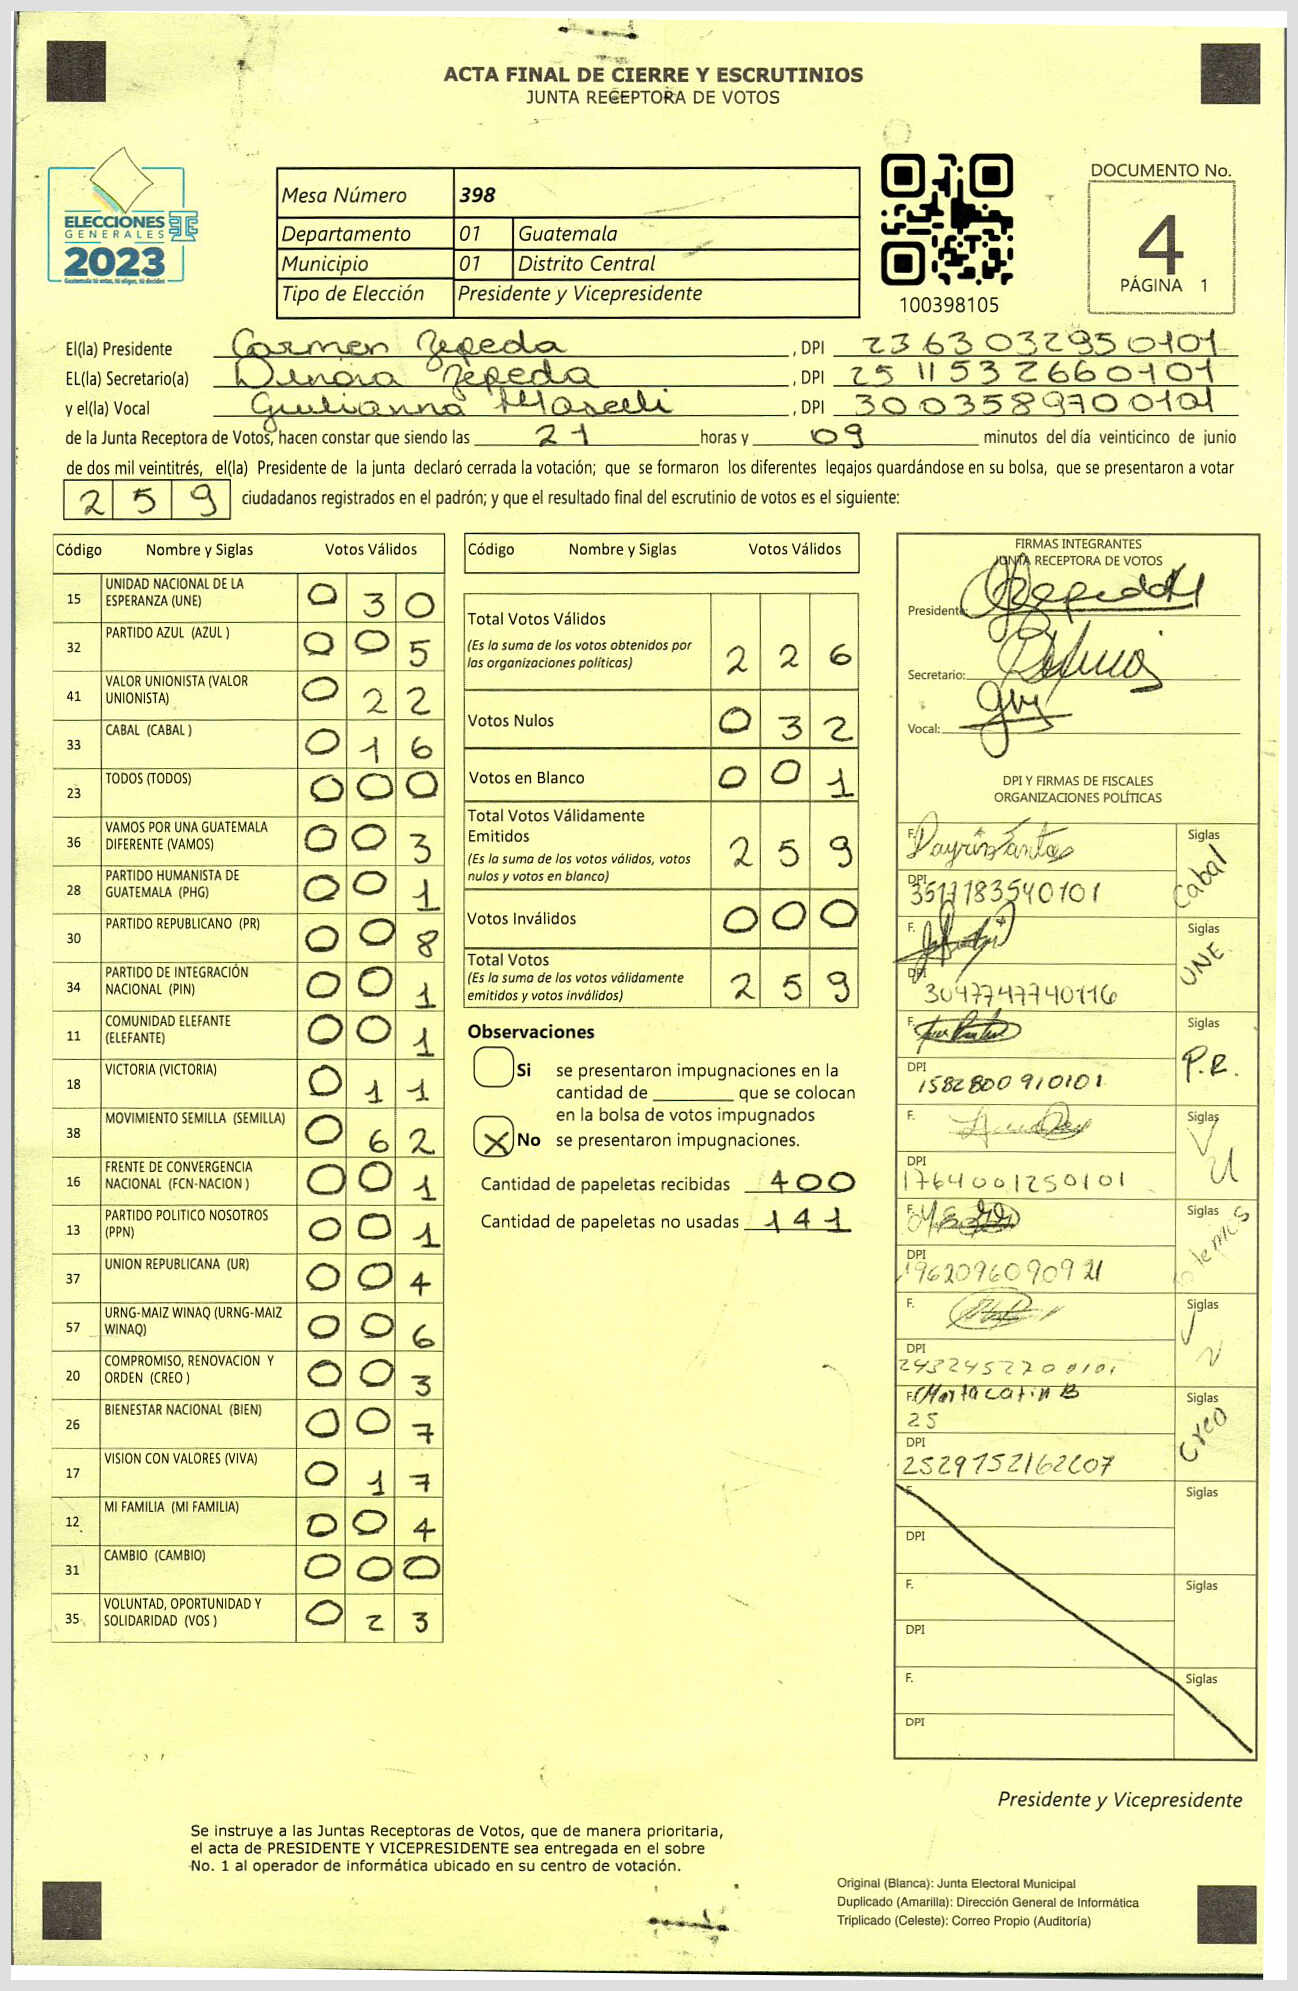 ACTA FINAL DE CIERRE Y ESCRUTINIOS
JUNTA RECEPTORA DE VOTOS
ELECCIONES
GENERALES
2023
Guatemala tú votas, tú eliges, tú decides
Mesa Número 398
Departamento 01 Guatemala
Municipio 01 Distrito Central
Tipo de Elección Presidente y Vicepresidente
100398105
DOCUMENTO No.
4
PÁGINA 1
El(la) Presidente Carmen Zepeda , DPI 2363032950101
EL(la) Secretario(a) Dinora Zepeda , DPI 2511532660101
y el(la) Vocal Giulianna Maselli , DPI 3003589700101
de la Junta Receptora de Votos, hacen constar que siendo las 21 horas y 09 minutos del día veinticinco de junio
de dos mil veintitrés, el(la) Presidente de la junta declaró cerrada la votación; que se formaron los diferentes legajos guardándose en su bolsa, que se presentaron a votar
259 ciudadanos registrados en el padrón; y que el resultado final del escrutinio de votos es el siguiente:
Código Nombre y Siglas Votos Válidos
15 UNIDAD NACIONAL DE LA ESPERANZA (UNE) 0 3 0
32 PARTIDO AZUL (AZUL ) 0 0 5
41 VALOR UNIONISTA (VALOR UNIONISTA) 0 2 2
33 CABAL (CABAL ) 0 1 6
23 TODOS (TODOS) 0 0 0
36 VAMOS POR UNA GUATEMALA DIFERENTE (VAMOS) 0 0 3
28 PARTIDO HUMANISTA DE GUATEMALA (PHG) 0 0 1
30 PARTIDO REPUBLICANO (PR) 0 0 8
34 PARTIDO DE INTEGRACIÓN NACIONAL (PIN) 0 0 1
11 COMUNIDAD ELEFANTE (ELEFANTE) 0 0 1
18 VICTORIA (VICTORIA) 0 1 1
38 MOVIMIENTO SEMILLA (SEMILLA) 0 6 2
16 FRENTE DE CONVERGENCIA NACIONAL (FCN-NACION ) 0 0 1
13 PARTIDO POLITICO NOSOTROS (PPN) 0 0 1
37 UNION REPUBLICANA (UR) 0 0 4
57 URNG-MAIZ WINAQ (URNG-MAIZ WINAQ) 0 0 6
20 COMPROMISO, RENOVACION Y ORDEN (CREO ) 0 0 3
26 BIENESTAR NACIONAL (BIEN) 0 0 7
17 VISION CON VALORES (VIVA) 0 1 7
12 MI FAMILIA (MI FAMILIA) 0 0 4
31 CAMBIO (CAMBIO) 0 0 0
35 VOLUNTAD, OPORTUNIDAD Y SOLIDARIDAD (VOS ) 0 2 3
Código Nombre y Siglas Votos Válidos
Total Votos Válidos 2 2 6
(Es la suma de los votos obtenidos por
las organizaciones políticas)
Votos Nulos 0 3 2
Votos en Blanco 0 0 1
Total Votos Válidamente
Emitidos 2 5 9
(Es la suma de los votos válidos, votos
nulos y votos en blanco)
Votos Inválidos 0 0 0
Total Votos 2 5 9
(Es la suma de los votos válidamente
emitidos y votos inválidos)
Observaciones
Si se presentaron impugnaciones en la
cantidad de ________ que se colocan
en la bolsa de votos impugnados
X No se presentaron impugnaciones.
Cantidad de papeletas recibidas 400
Cantidad de papeletas no usadas 141
FIRMAS INTEGRANTES
JUNTA RECEPTORA DE VOTOS
Presidente:
Secretario:
Vocal:
DPI Y FIRMAS DE FISCALES
ORGANIZACIONES POLÍTICAS
F. Siglas Cabal
DPI 3511183540101
F. Siglas UNE
DPI 3047747740116
F. Siglas P.R.
DPI 1582800910101
F. Siglas VU
DPI 1764001250101
F. Siglas
DPI
F. Siglas
DPI
F. Siglas Creo
25
DPI
F. Siglas
DPI
F. Siglas
DPI
F. Siglas
DPI
Presidente y Vicepresidente
Se instruye a las Juntas Receptoras de Votos, que de manera prioritaria,
el acta de PRESIDENTE Y VICEPRESIDENTE sea entregada en el sobre
No. 1 al operador de informática ubicado en su centro de votación.
Original (Blanca): Junta Electoral Municipal
Duplicado (Amarilla): Dirección General de Informática
Triplicado (Celeste): Correo Propio (Auditoría)